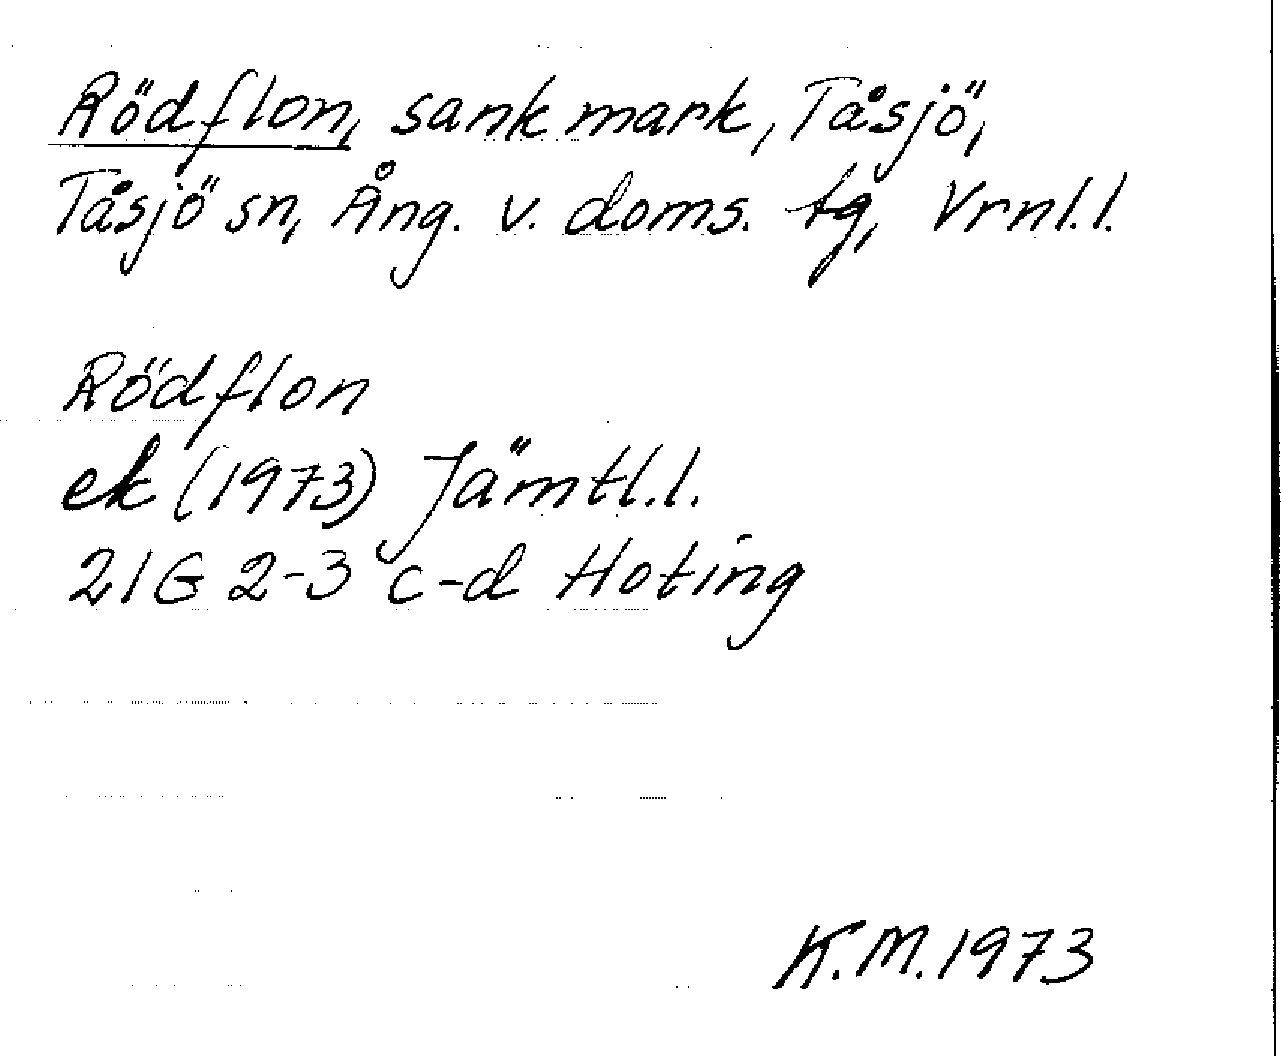 Rödflon, sank mark, Tåsjö,
Tåsjö sn, Ång. v. doms. tg, Vrnl.l.
Rödflon
ek (1973) Jämtl.l.
21G 2-3 c-d Hoting
K.M. 1973